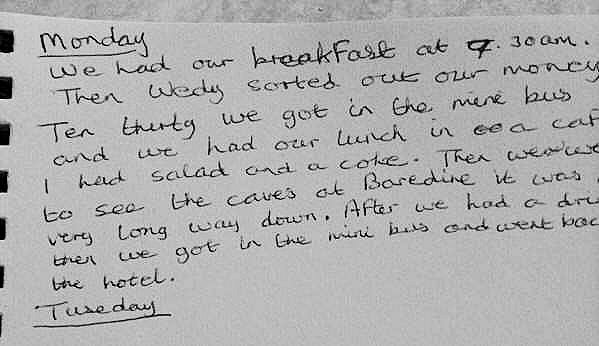 Monday
We had our breakfast at 9.30am.
Then Wedy sorted out our money
Ten thirty we got in the mini bus
and we had our lunch in a caf
I had salad and a coke. Then we went
to see the caves at Baredine it was
very long way down. After we had a dri
then we got in the mini bus and went bac
the hotel.
Tuseday